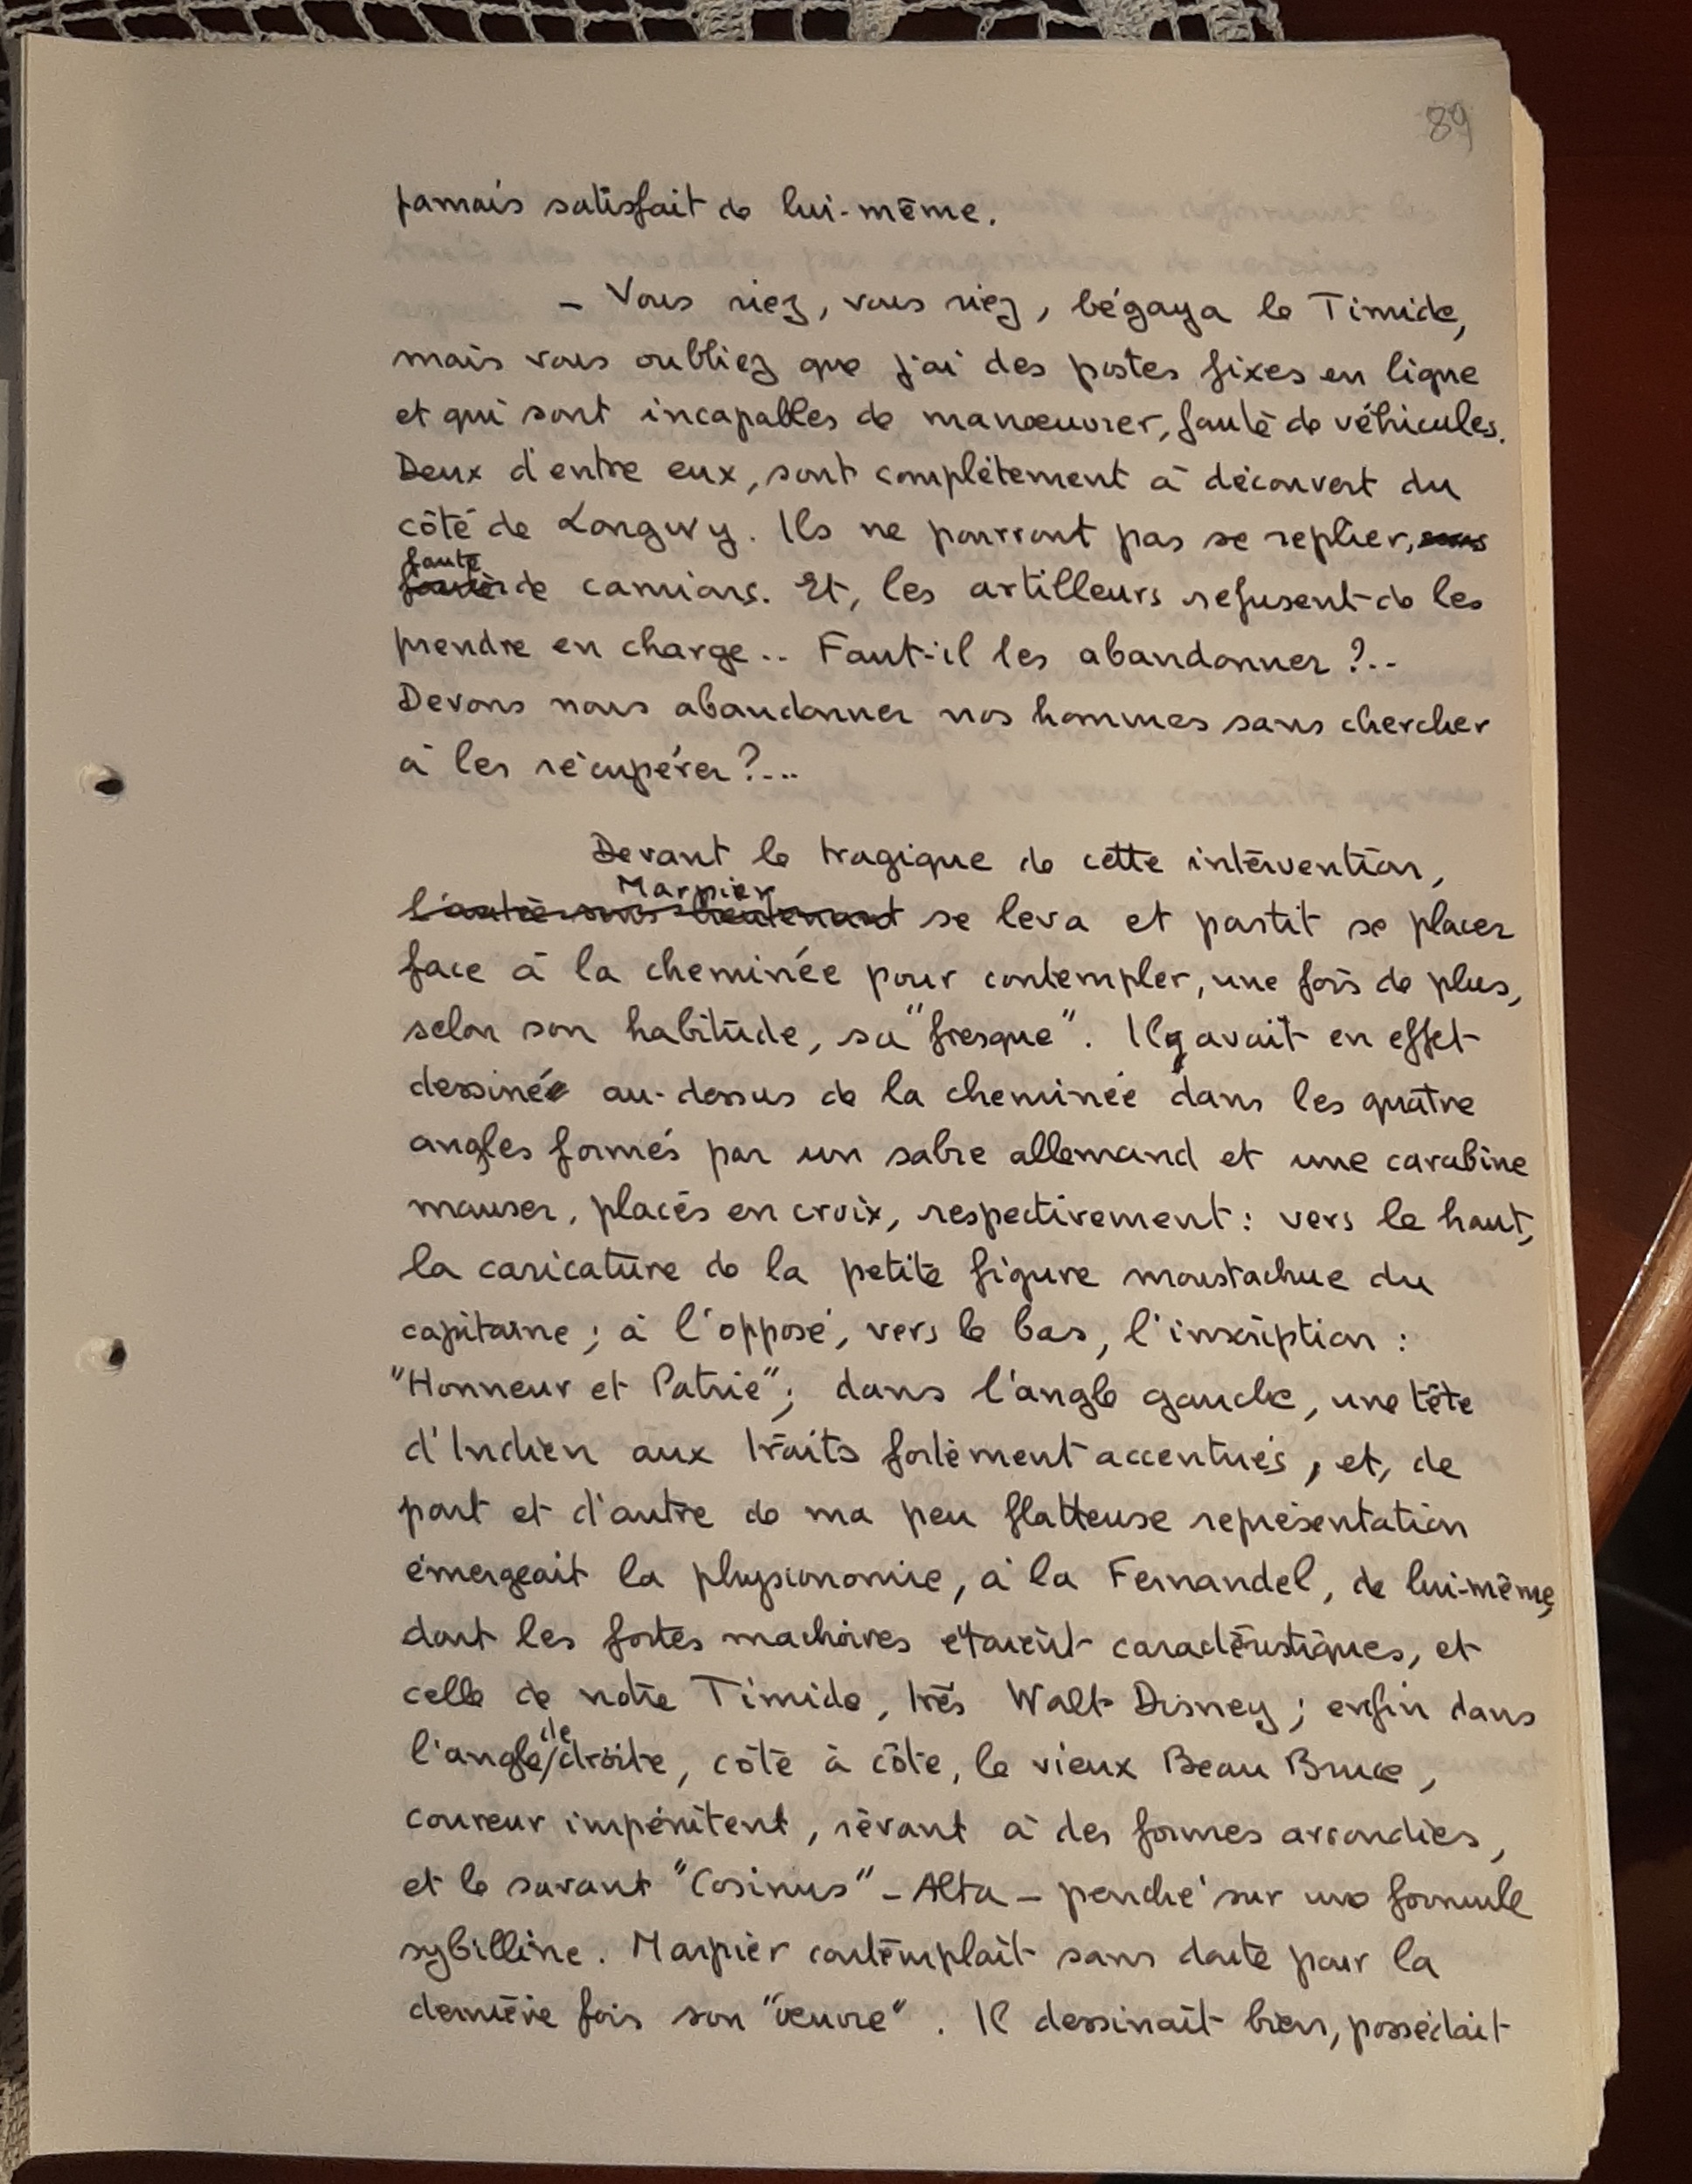 89
jamais satisfait de lui-même.
– Vous riez, vous riez, bégaya le Timide,
mais vous oubliez que j'ai des postes fixes en ligne
et qui sont incapables de manœuvrer, faute de véhicules.
Deux d'entre eux, sont complètement à découvert du
côté de Longwy. Ils ne pourront pas se replier,
faute de camions. Et, les artilleurs refusent de les
prendre en charge.. Faut-il les abandonner ?..
Devons nous abandonner nos hommes sans chercher
à les récupérer ?...
Devant le tragique de cette intervention,
Marpier
l'autre sous-lieutenant se leva et partit se placer
face à la cheminée pour contempler, une fois de plus,
selon son habitude, sa "fresque". Il y avait en effet
dessiné au-dessus de la cheminée dans les quatre
angles formés par un sabre allemand et une carabine
mauser, placés en croix, respectivement : vers le haut,
la caricature de la petite figure moustachue du
capitaine ; à l'opposé, vers le bas, l'inscription :
"Honneur et Patrie"; dans l'angle gauche, une tête
d'Indien aux traits fortement accentués, et, de
part et d'autre de ma peu flatteuse représentation
émergeait la physionomie, à la Fernandel, de lui-même,
dont les fortes machoires étaient caractéristiques, et
celle de notre Timide, très Walt Disney ; enfin dans
l'angle de droite, côte à côte, le vieux Beau Bruce,
coureur impénitent, rêvant à des formes arrondies,
et le savant "Cosinus" – Alta – penché sur une formule
sybilline. Marpier contemplait sans doute pour la
dernière fois son "œuvre". Il dessinait bien, possédait